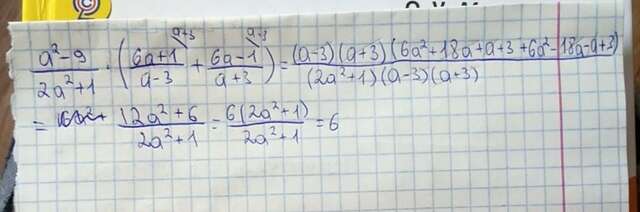 (a² - 9)/(2a² + 1) · ((6a+1)/(a-3) + (6a-1)/(a+3)) = ((a-3)(a+3)(6a²+18a+a+3+6a²-18a-a+3))/((2a²+1)(a-3)(a+3))
= (12a²+6)/(2a²+1) = (6(2a²+1))/(2a²+1) = 6